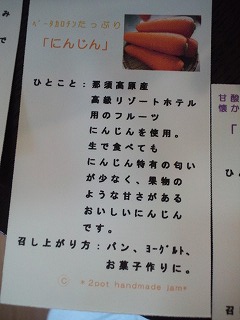 ﾍﾞｰﾀｶﾛﾃﾝたっぷり
「にんじん」
ひとこと：那須高原産
高級リゾートホテル
用のフルーツ
にんじんを使用。
生で食べても
にんじん特有の匂い
が少なく、果物の
ような甘さがある
おいしいにんじん
です。
召し上がり方：パン、ﾖｰｸﾞﾙﾄ、
お菓子作りに。
*2pot handmade jam*
み
で
甘酸
懐か